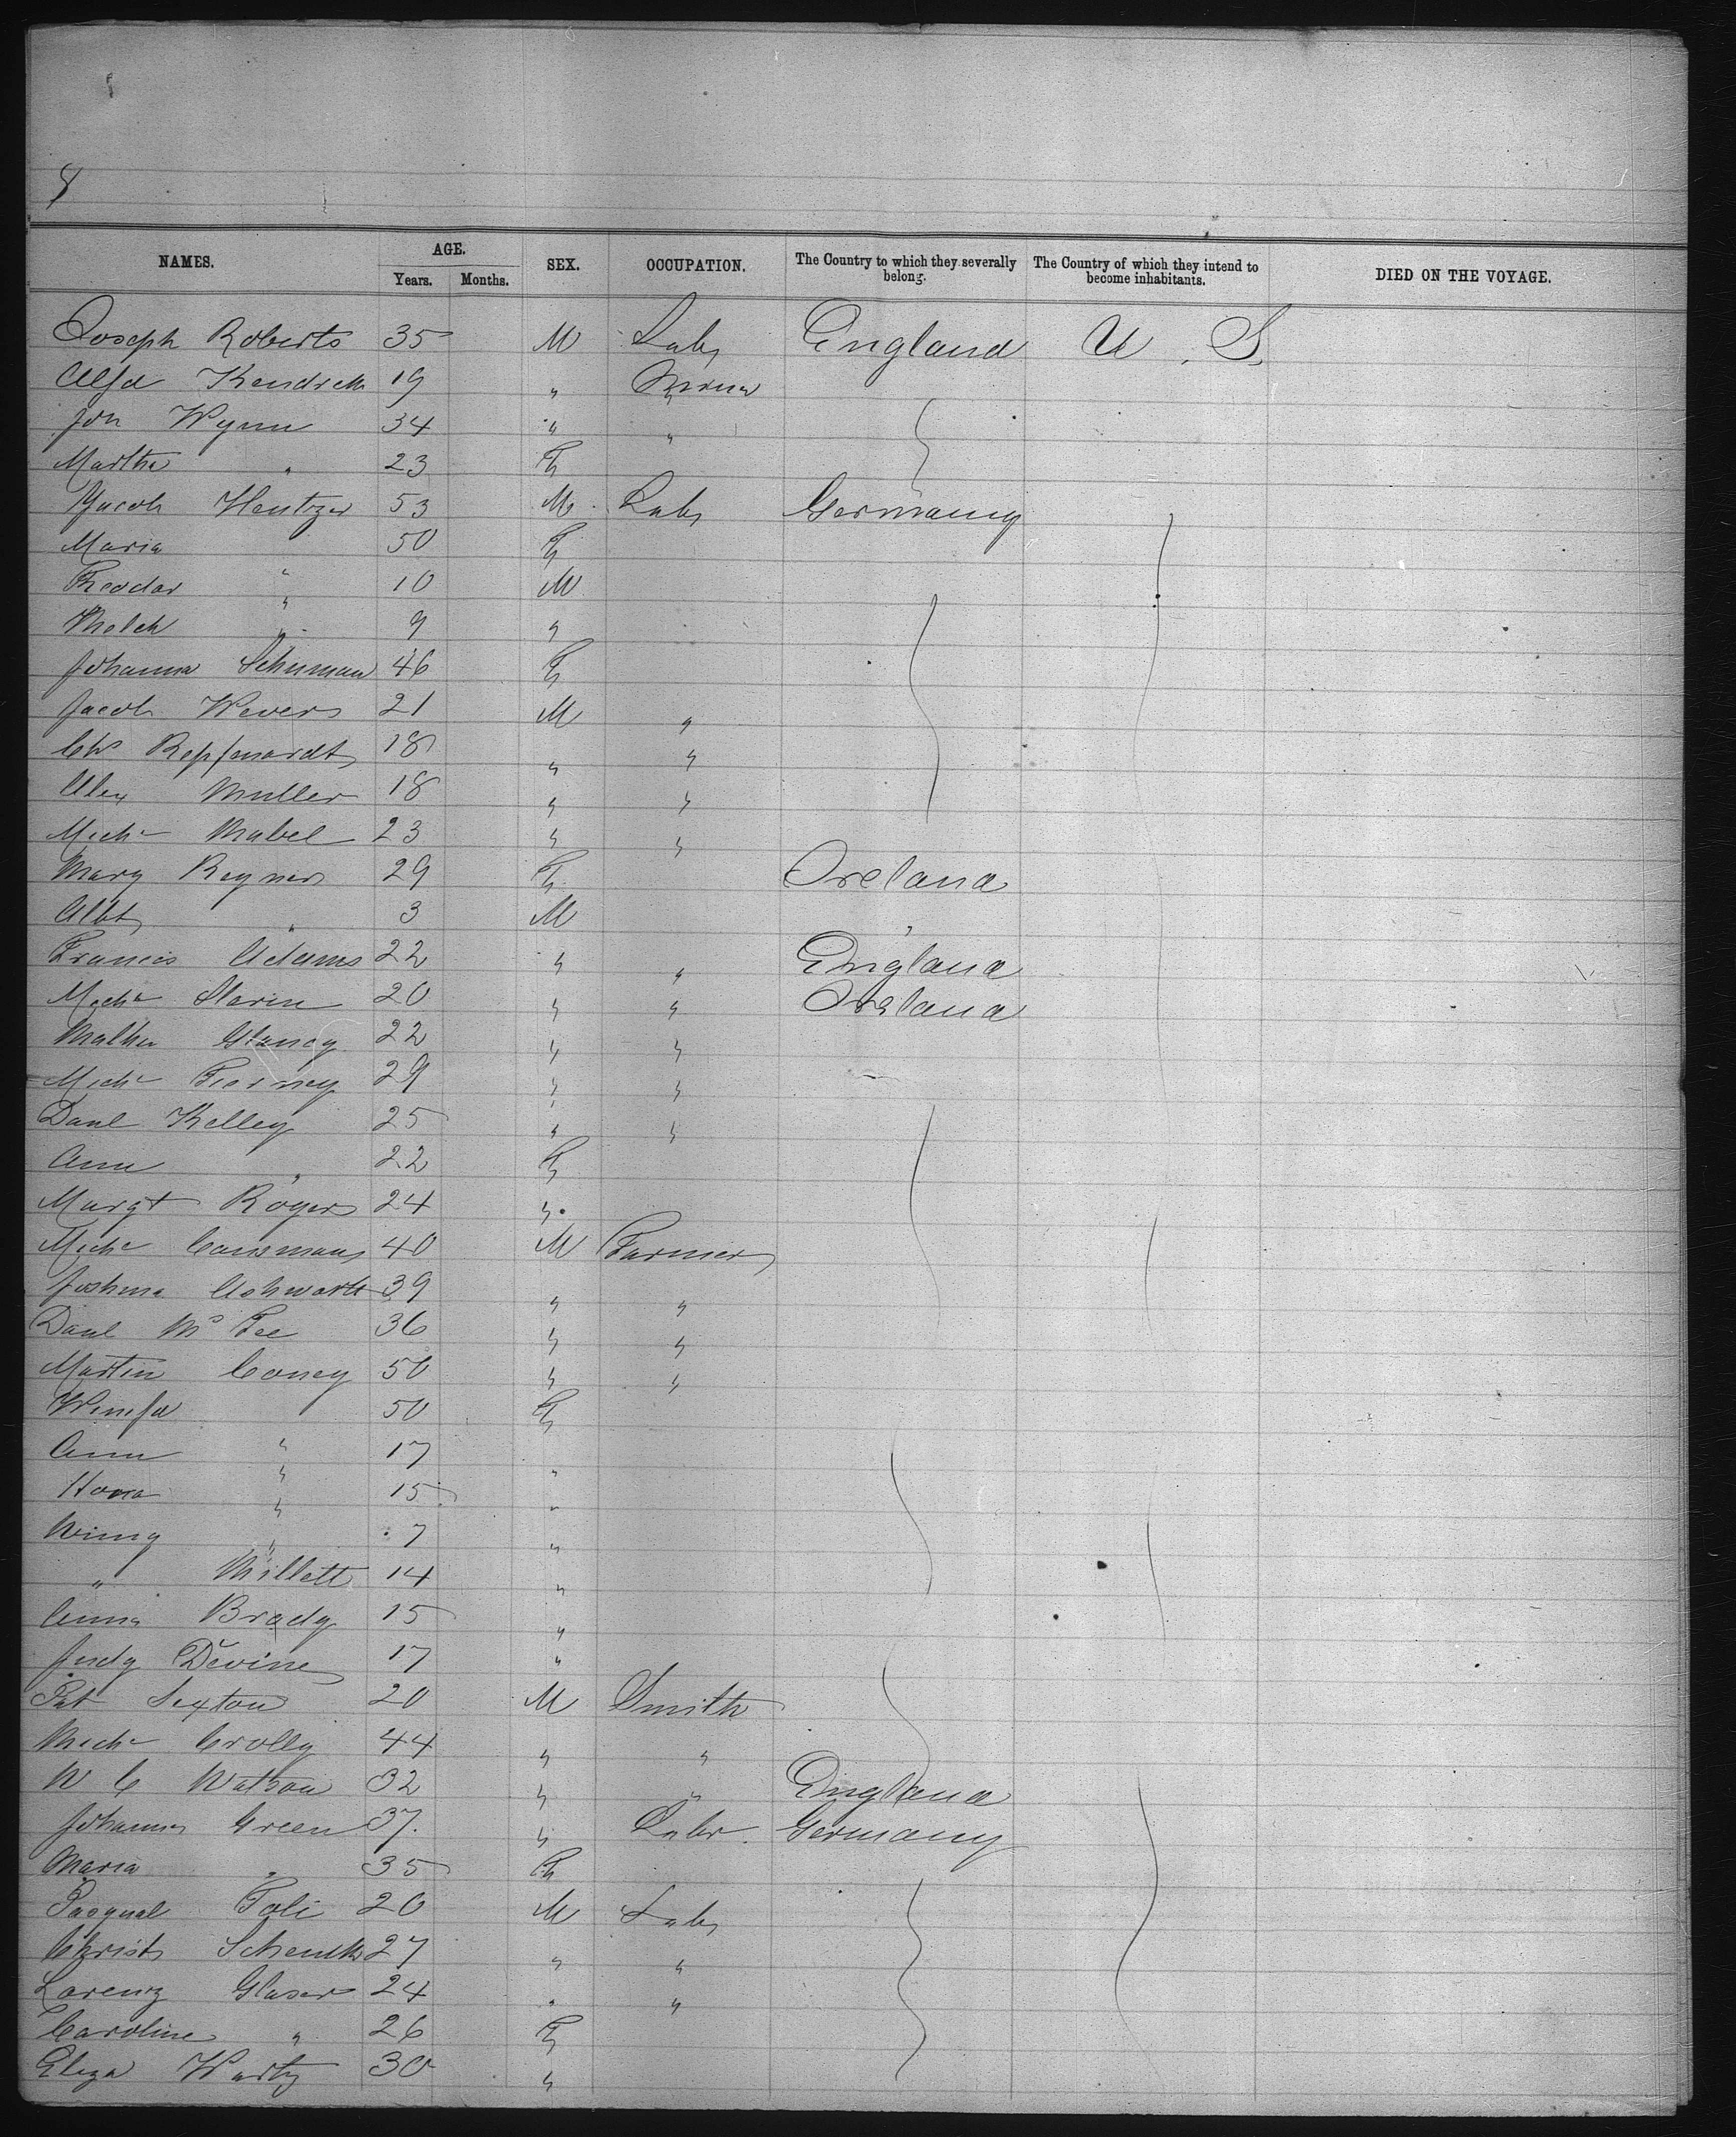 8
NAMES. AGE. SEX. OCCUPATION. The Country to which they severally belong. The Country of which they intend to become inhabitants. DIED ON THE VOYAGE.
Years. Months.
Joseph Roberts 35 M Labr England U. S.
Alfd Kendrick 19 "
Jon Wynn 34 " "
Martha " 23 F
Jacob Hentzer 53 M Labr Germany
Maria 50 F
Theodor " 10 M
Melch " 9 "
Johanna Schuman 46 F
Jacob Wevers 21 M "
Chs 18 " "
Alex Muller 18 " "
Michl Mabel 23 " "
Mary Reyner 29 F Ireland
Albt " 3 M "
Francis Adams 22 " " England
Michl Slavin 20 " " Ireland
Mathw Glancy 22 " "
Michl Tierney 29 " "
Danl Kelley 25 " "
Ann " 22 F
Margt Rogers 24 "
Michl 40 M Farmer
Joshua Ashworth 39 " "
Danl Mc Fee 36 " "
Martin Coney 50 " "
Winifd 50 F
Ann " 17 "
Hona " 15 "
Winny " 7 "
" Millett 14 "
Anna Brady 15 "
Judy Devine 17 "
Pat Sexton 20 M Smith
Michl Crolly 44 " "
W C Watson 32 " " England
Johannes Green 37. " Labr. Germany
Maria " 35 F
Pasqual Foli 20 M Labr
Christn 27 " "
Lorenz Glaser 24 " "
Caroline " 26 F
Eliza Wartz 30 "